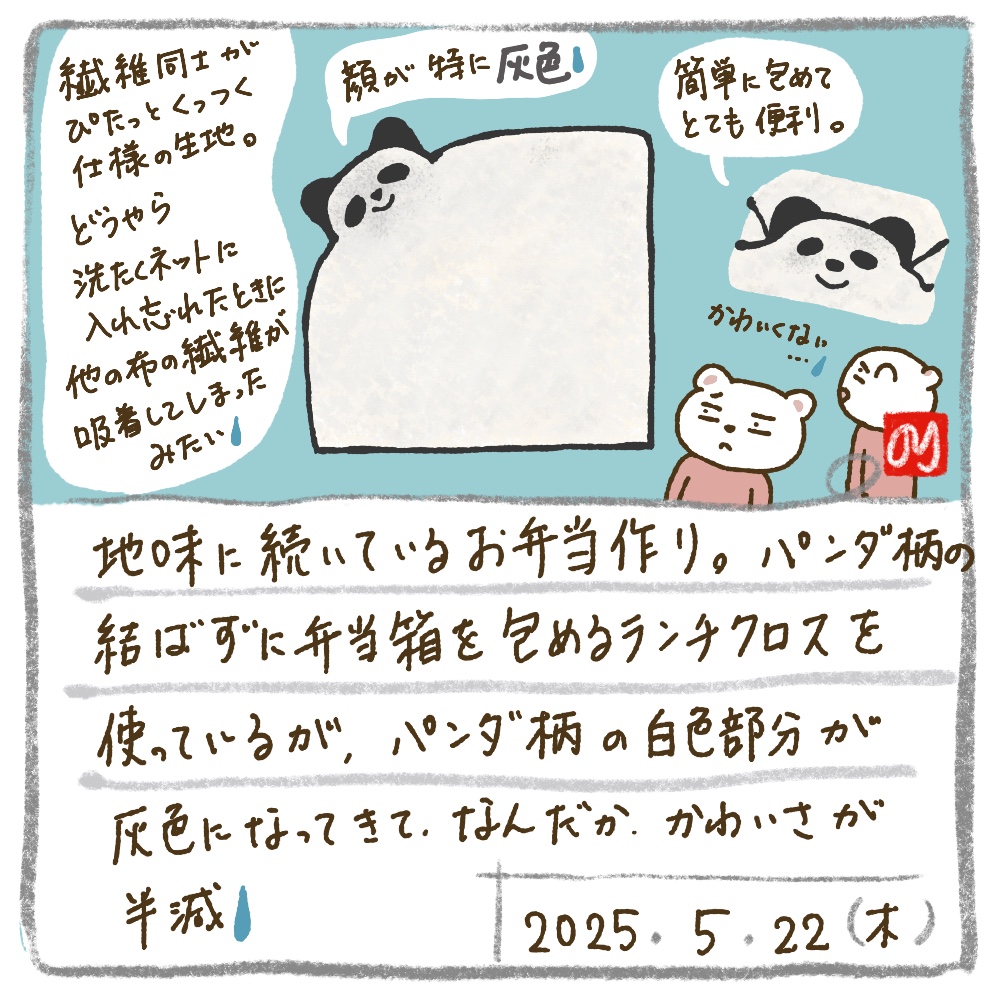 繊維同士が
ぴたっとくっつく
仕様の生地。
どうやら
洗たくネットに
入れ忘れたときに
他の布の繊維が
吸着してしまった
みたい
顔が特に灰色
簡単に包めて
とても便利。
かわいくない
...
のり
地味に続いているお弁当作り。パンダ柄の
結ばずに弁当箱を包めるランチクロスを
使っているが、パンダ柄の白色部分が
灰色になってきて、なんだか、かわいさが
半減
2025.5.22(木)